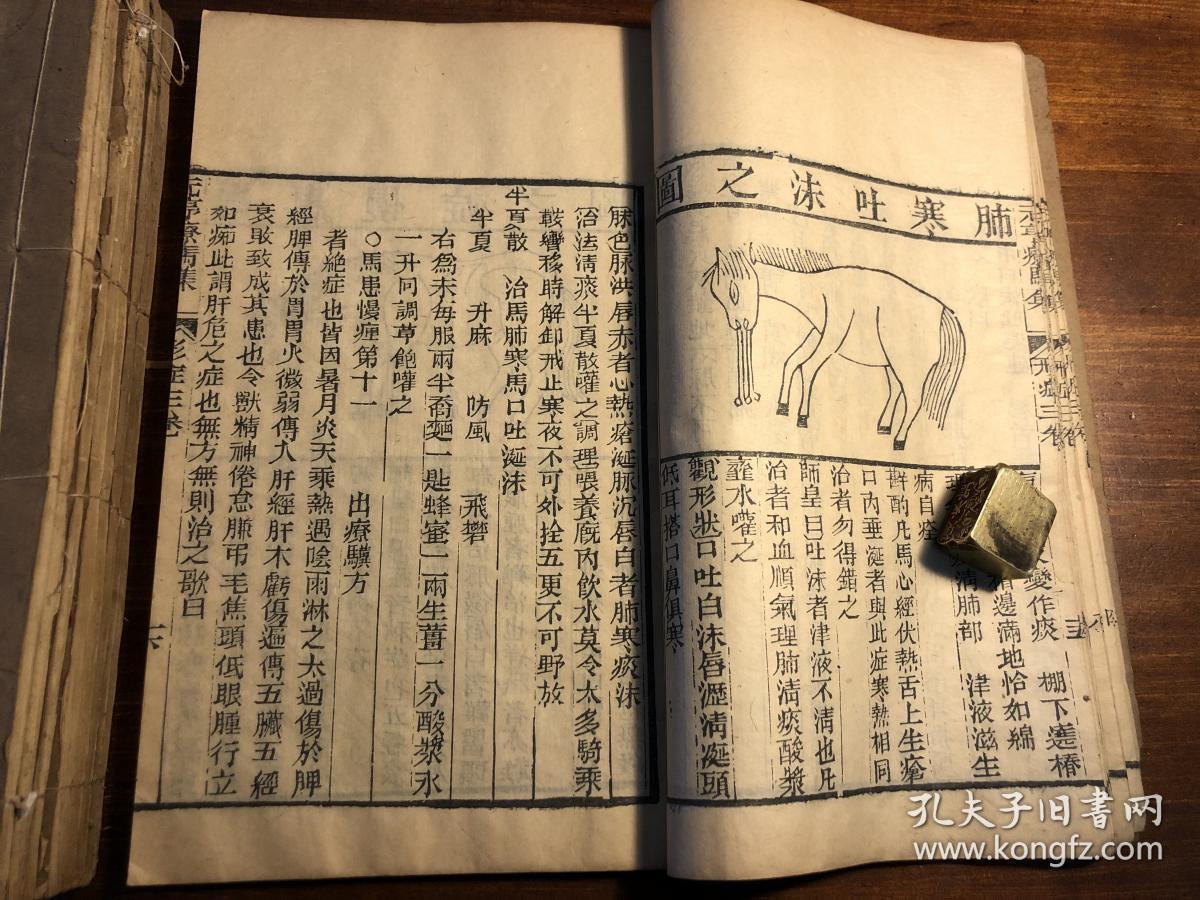 肺寒吐沫之圖
變作痰　棚下遶樁
邊滿地恰如綿
清肺部　津液滋生
病自痊
斟酌凡馬心經伏熱舌上生瘡
口內垂涎者與此症寒熱相同
治者勿得錯之
師皇曰吐沫者津液不清也凡
治者和血順氣理肺清痰酸漿
虀水嚾之
觀形狀口吐白沫唇瀝清涎頭
低耳搭口鼻俱寒
脉色脉洪唇赤者心熱瘡涎脉沉唇白者肺寒痰沫
治法清痰半夏散嚾之調理喂養廐內飲水莫令太多騎乘
鞍轡移時解卸戒止寒夜不可外拴五更不可野放
半夏散　治馬肺寒馬口吐涎沫
半夏　升麻　防風　飛礬
右爲末每服兩半蕎麵一匙蜂蜜二兩生薑一分酸漿水
一升同調草飽嚾之
○馬患慢症第十一　出療驥方
者絶症也皆因暑月炎天乘熱遇陰雨淋之太過傷於脾
經脾傳於胃胃火微弱傳入肝經肝木虧傷遍傳五臟五經
衰敗致成其患也令獸精神倦怠膁弔毛焦頭低眼腫行立
如痴此謂肝危之症也無方無則治之歌曰
元亨療馬集　形症三卷　六
孔夫子旧书网
www.kongfz.com